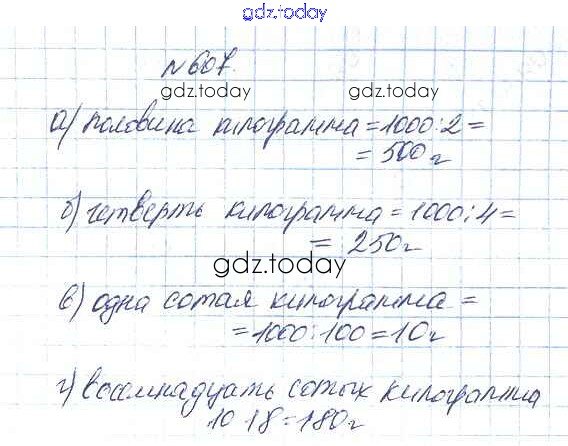 gdz.today
№607.
gdz.today gdz.today
а) половина килограмма = 1000 : 2 =
= 500 г
б) четверть килограмма = 1000 : 4 =
= 250 г
gdz.today
в) одна сотая килограмма =
= 1000 : 100 = 10 г
г) восемнадцать сотых килограмма
10 18 = 180 г